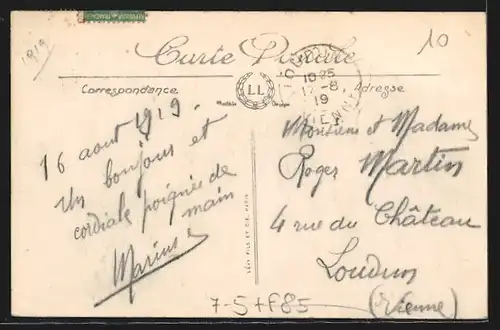 1919
10
Carte Postale
Correspondance
LL
Adresse
10 25
17-8
19
16 aout 1919.
Un bonjour et
cordiale poignée de
main
Marius
LÉVY FILS ET CIE, PARIS
Monsieur et Madame
Roger Martin
4 rue du Château
Loudun
(Vienne)
7-5+F85